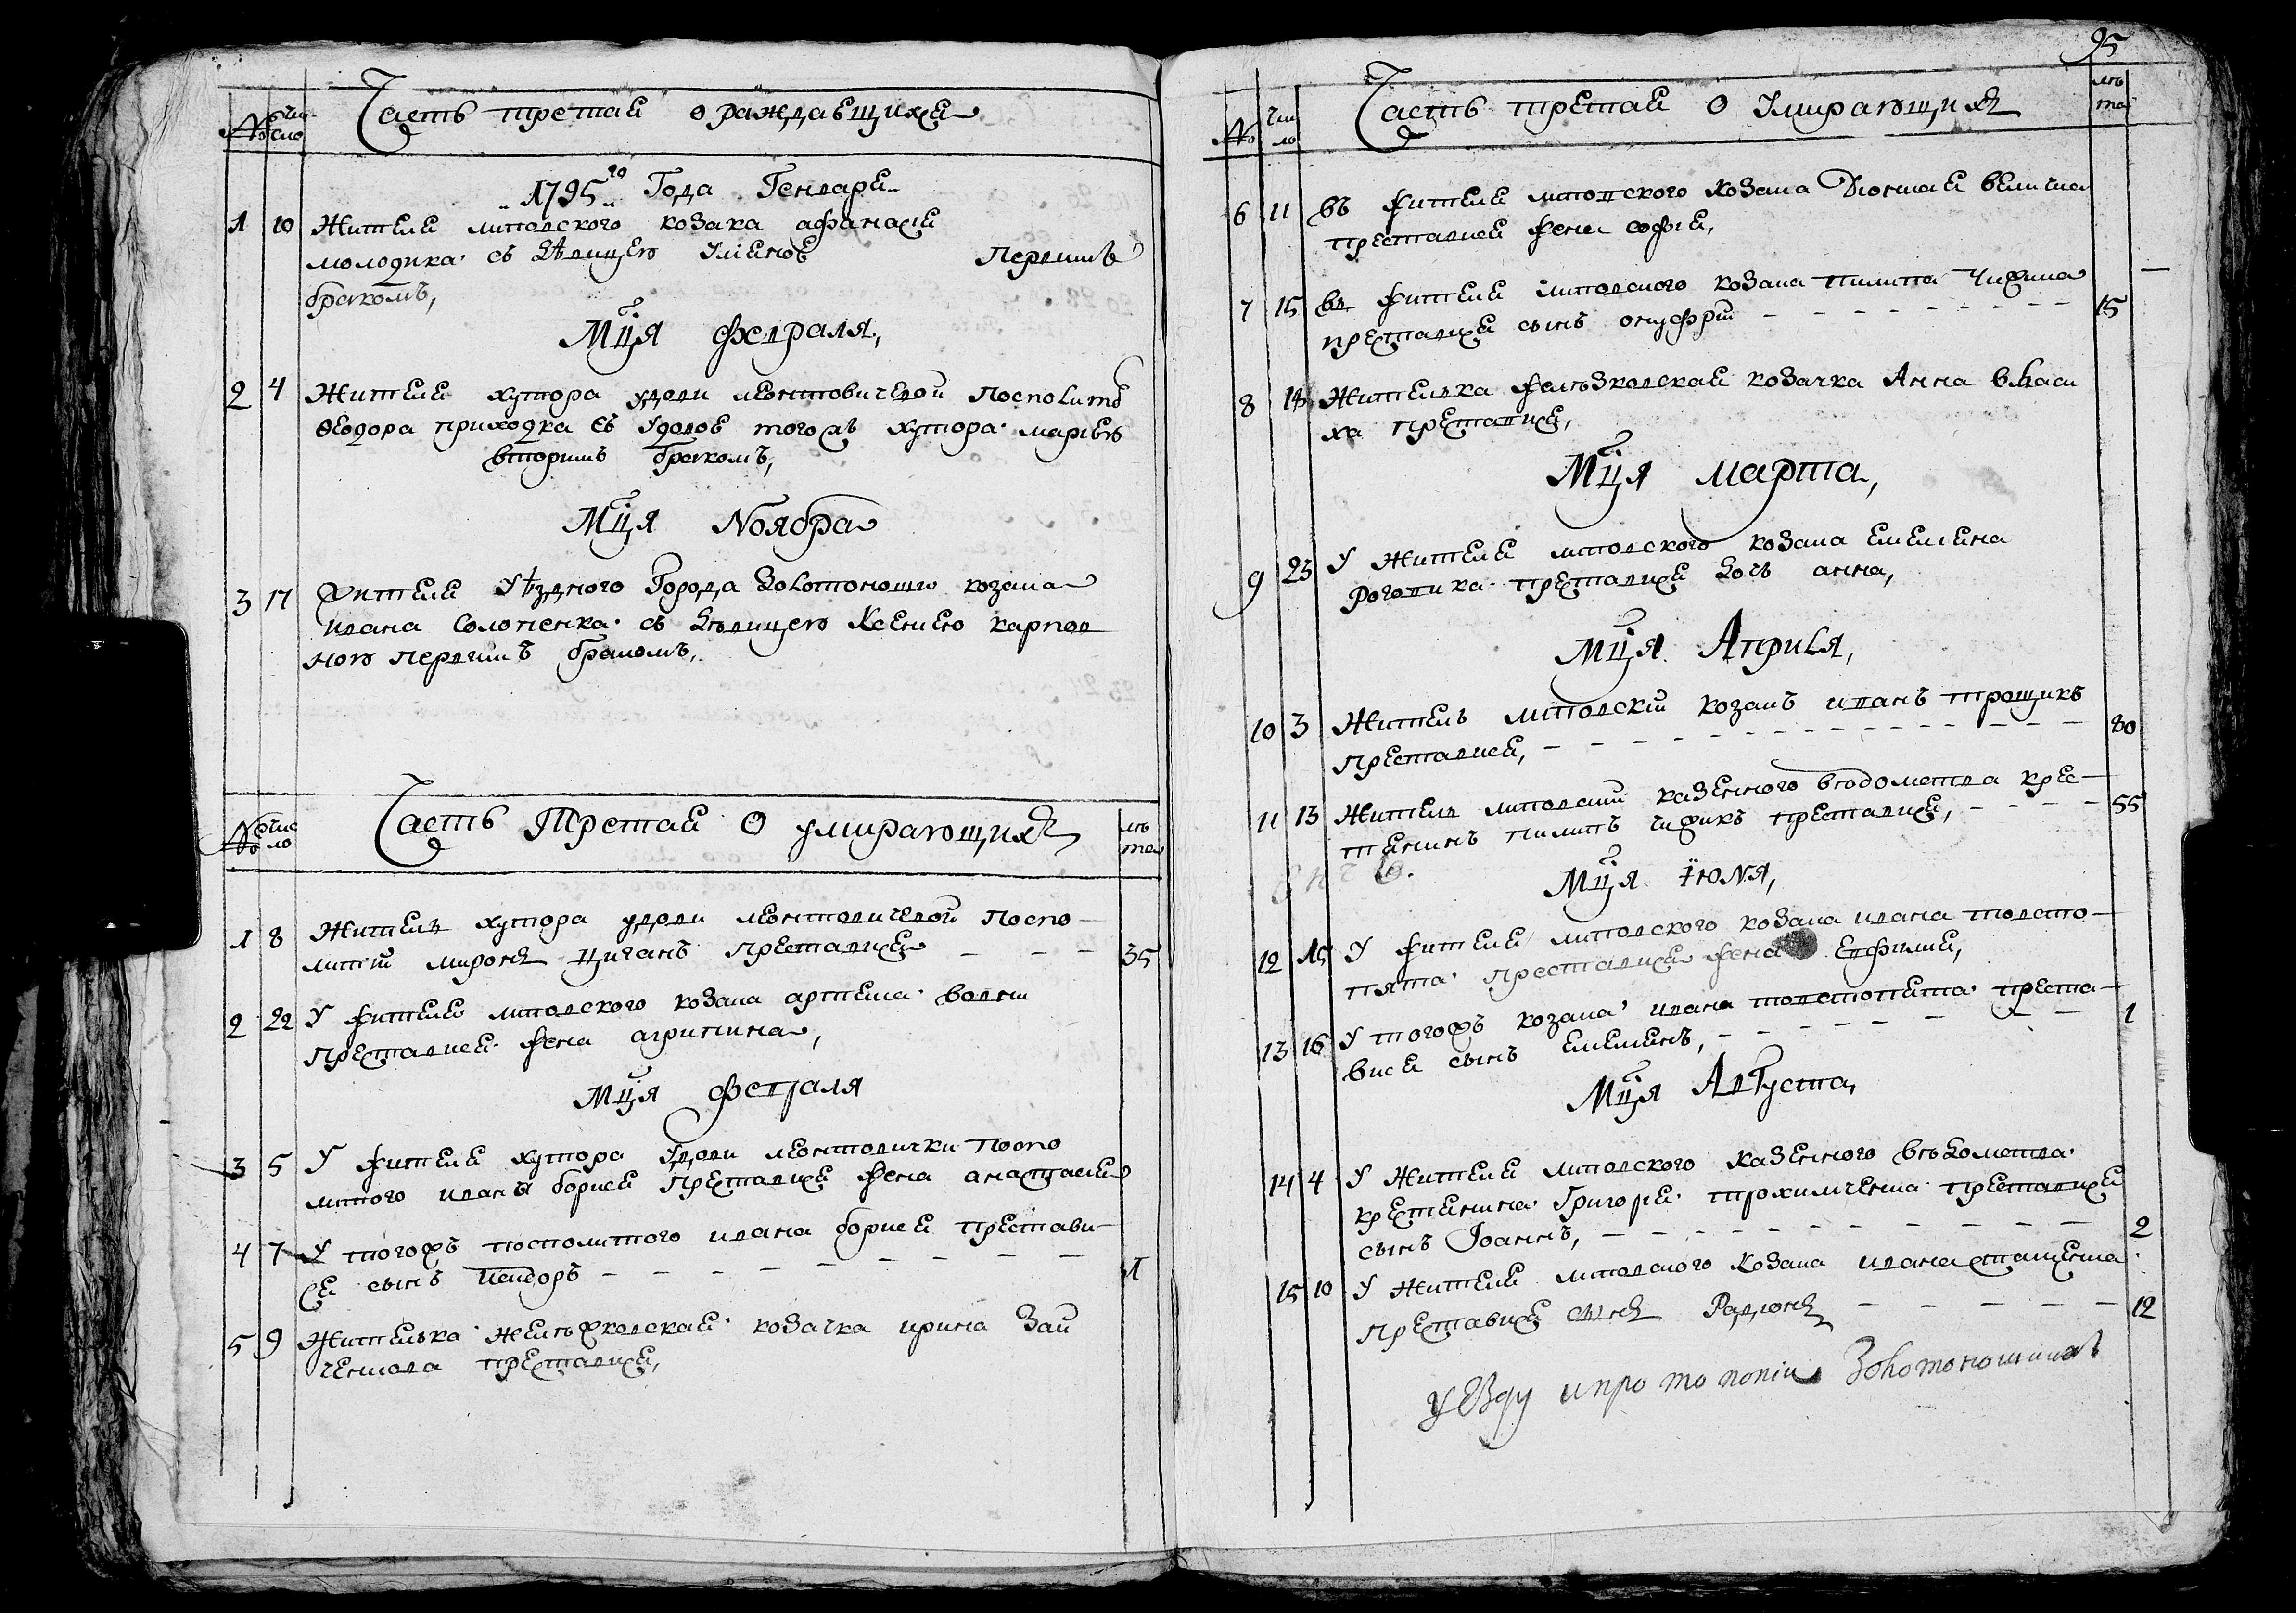 № число
Часть третая о раждаещихся
1795го Года Генваря
1 10 Жителя липовского козака афанасия
молодика съ девицею Улиною первымъ
бракомъ,
Мця февраля,
2 4 Жителя хутора удови леонтовичевой Посполитого
Феодора приходка съ Удовою тогожъ хутора мариею
вторимъ бракомъ,
Мця Ноября
3 17 Жителя Уѣздного Города Золотоноши козака
ивана Солопенка съ девицею Ксениею карпов
ною первимъ бракомъ,
№ число
Часть Третая О умирающихъ
лѣта
1 8 Житель хутора удови леонтовичевой Поспо-
литий миронъ циганъ преставися 35
2 22 У жителя липовского козака артема
преставися жена агрипина,
Мця февраля
3 5 У жителя хутора удови леонтовички Поспо
литого ивана борисея преставися жена анастасия
4 7 У тогожъ посполитого ивана борисея престави-
ся сынъ исидоръ 1
5 9 Жителька козачка ирина Зай
ченкова преставися,
95
№ число
Часть третая О Умирающихъ
лѣта
6 11 въ жителя липовского козака
преставися жена софия,
7 15 въ жителя липовского козака пилипа Чижика
преставися сынъ онуфрий 15
8 18 Жителька козачка Анна власи
ха преставися,
Мця марта,
9 23 У Жителя липовского козака емелияна
преставися дочь анна,
Мця Априля,
10 3 Житель липовский козакъ иванъ трощикъ
преставися, 80
11 13 Житель липовский казенного вѣдомства крес-
тянинъ пилипъ чижикъ преставися, 55
Мця Iюня,
12 15 У жителя липовского козака ивана толсто-
пята преставися жена Евфимия,
13 16 У тогожъ козака ивана толстопята преста-
вися сынъ емелиянъ, 1
Мця Августа,
14 4 У Жителя липовского казенного вѣдомства
крестянина Григория трохимченка преставися
сынъ Iоаннъ, 2
15 10 У Жителя липовского козака ивана
преставися сынъ Радионъ 12
уезду и протопопіи Золотоношской